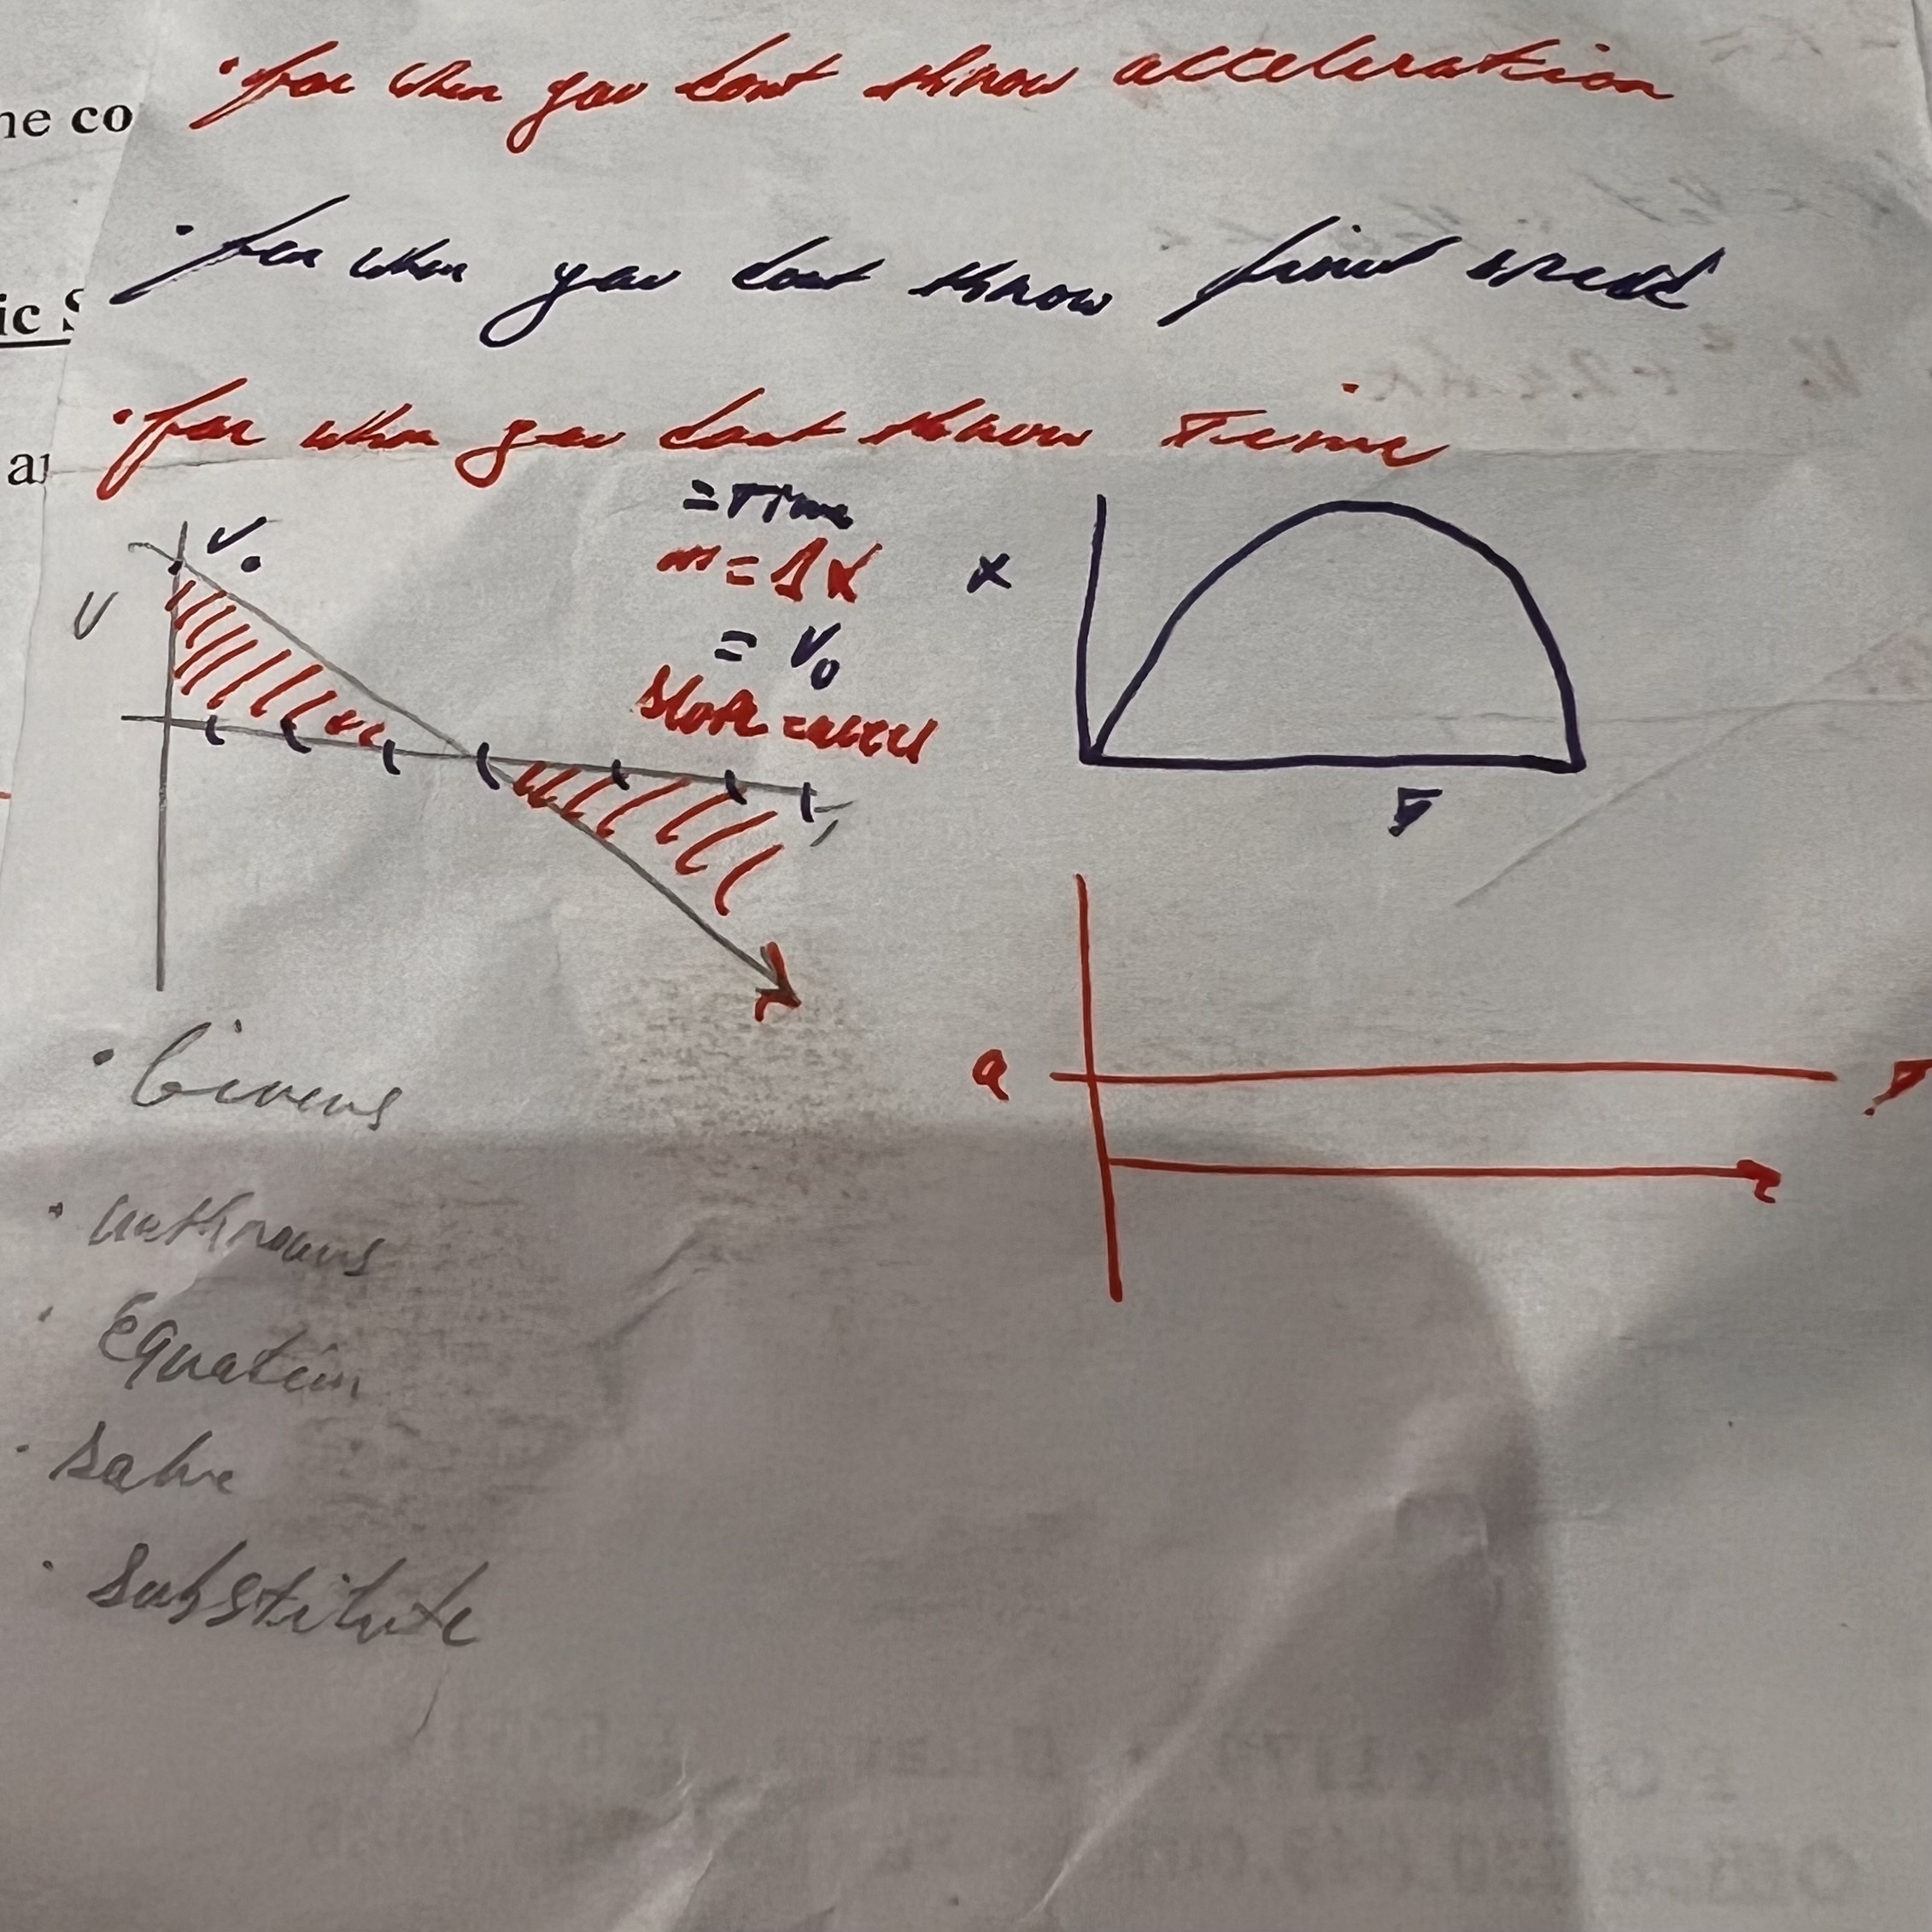 • for when you dont know acceleration
ne co
• for when you dont know final speed
ic S
• for when you dont know Time
= Time
V₀
m = Δx
x
V
= V₀
slope = accel
a
• Givens
• unknowns
• Equation
• Solve
• Substitute